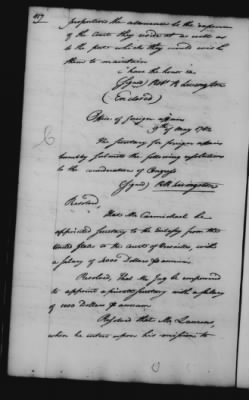 proportion the allowances to the expences
of the Courts they reside at as well as
to the port which they would wish
them to maintain
I have the honor &c.
(signed) Robt R Livingston
(Enclosed)
Office of foreign affairs
9th of May 1782
The Secretary for foreign affairs
humbly submits the following
to the consideration of Congress
(signed) RR Livingston
Resolved,
That Mr Carmichael be
appointed Secretary to the Embassy from the
United States to the Court of Versailles, with
a salary of Dollars P annum.
Resolved, That Mr Jay be empowered
to appoint a private Secretary with a salary
of 1000 Dollars P annum.
Resolved that Mr Laurens,
when he enters upon his mission to